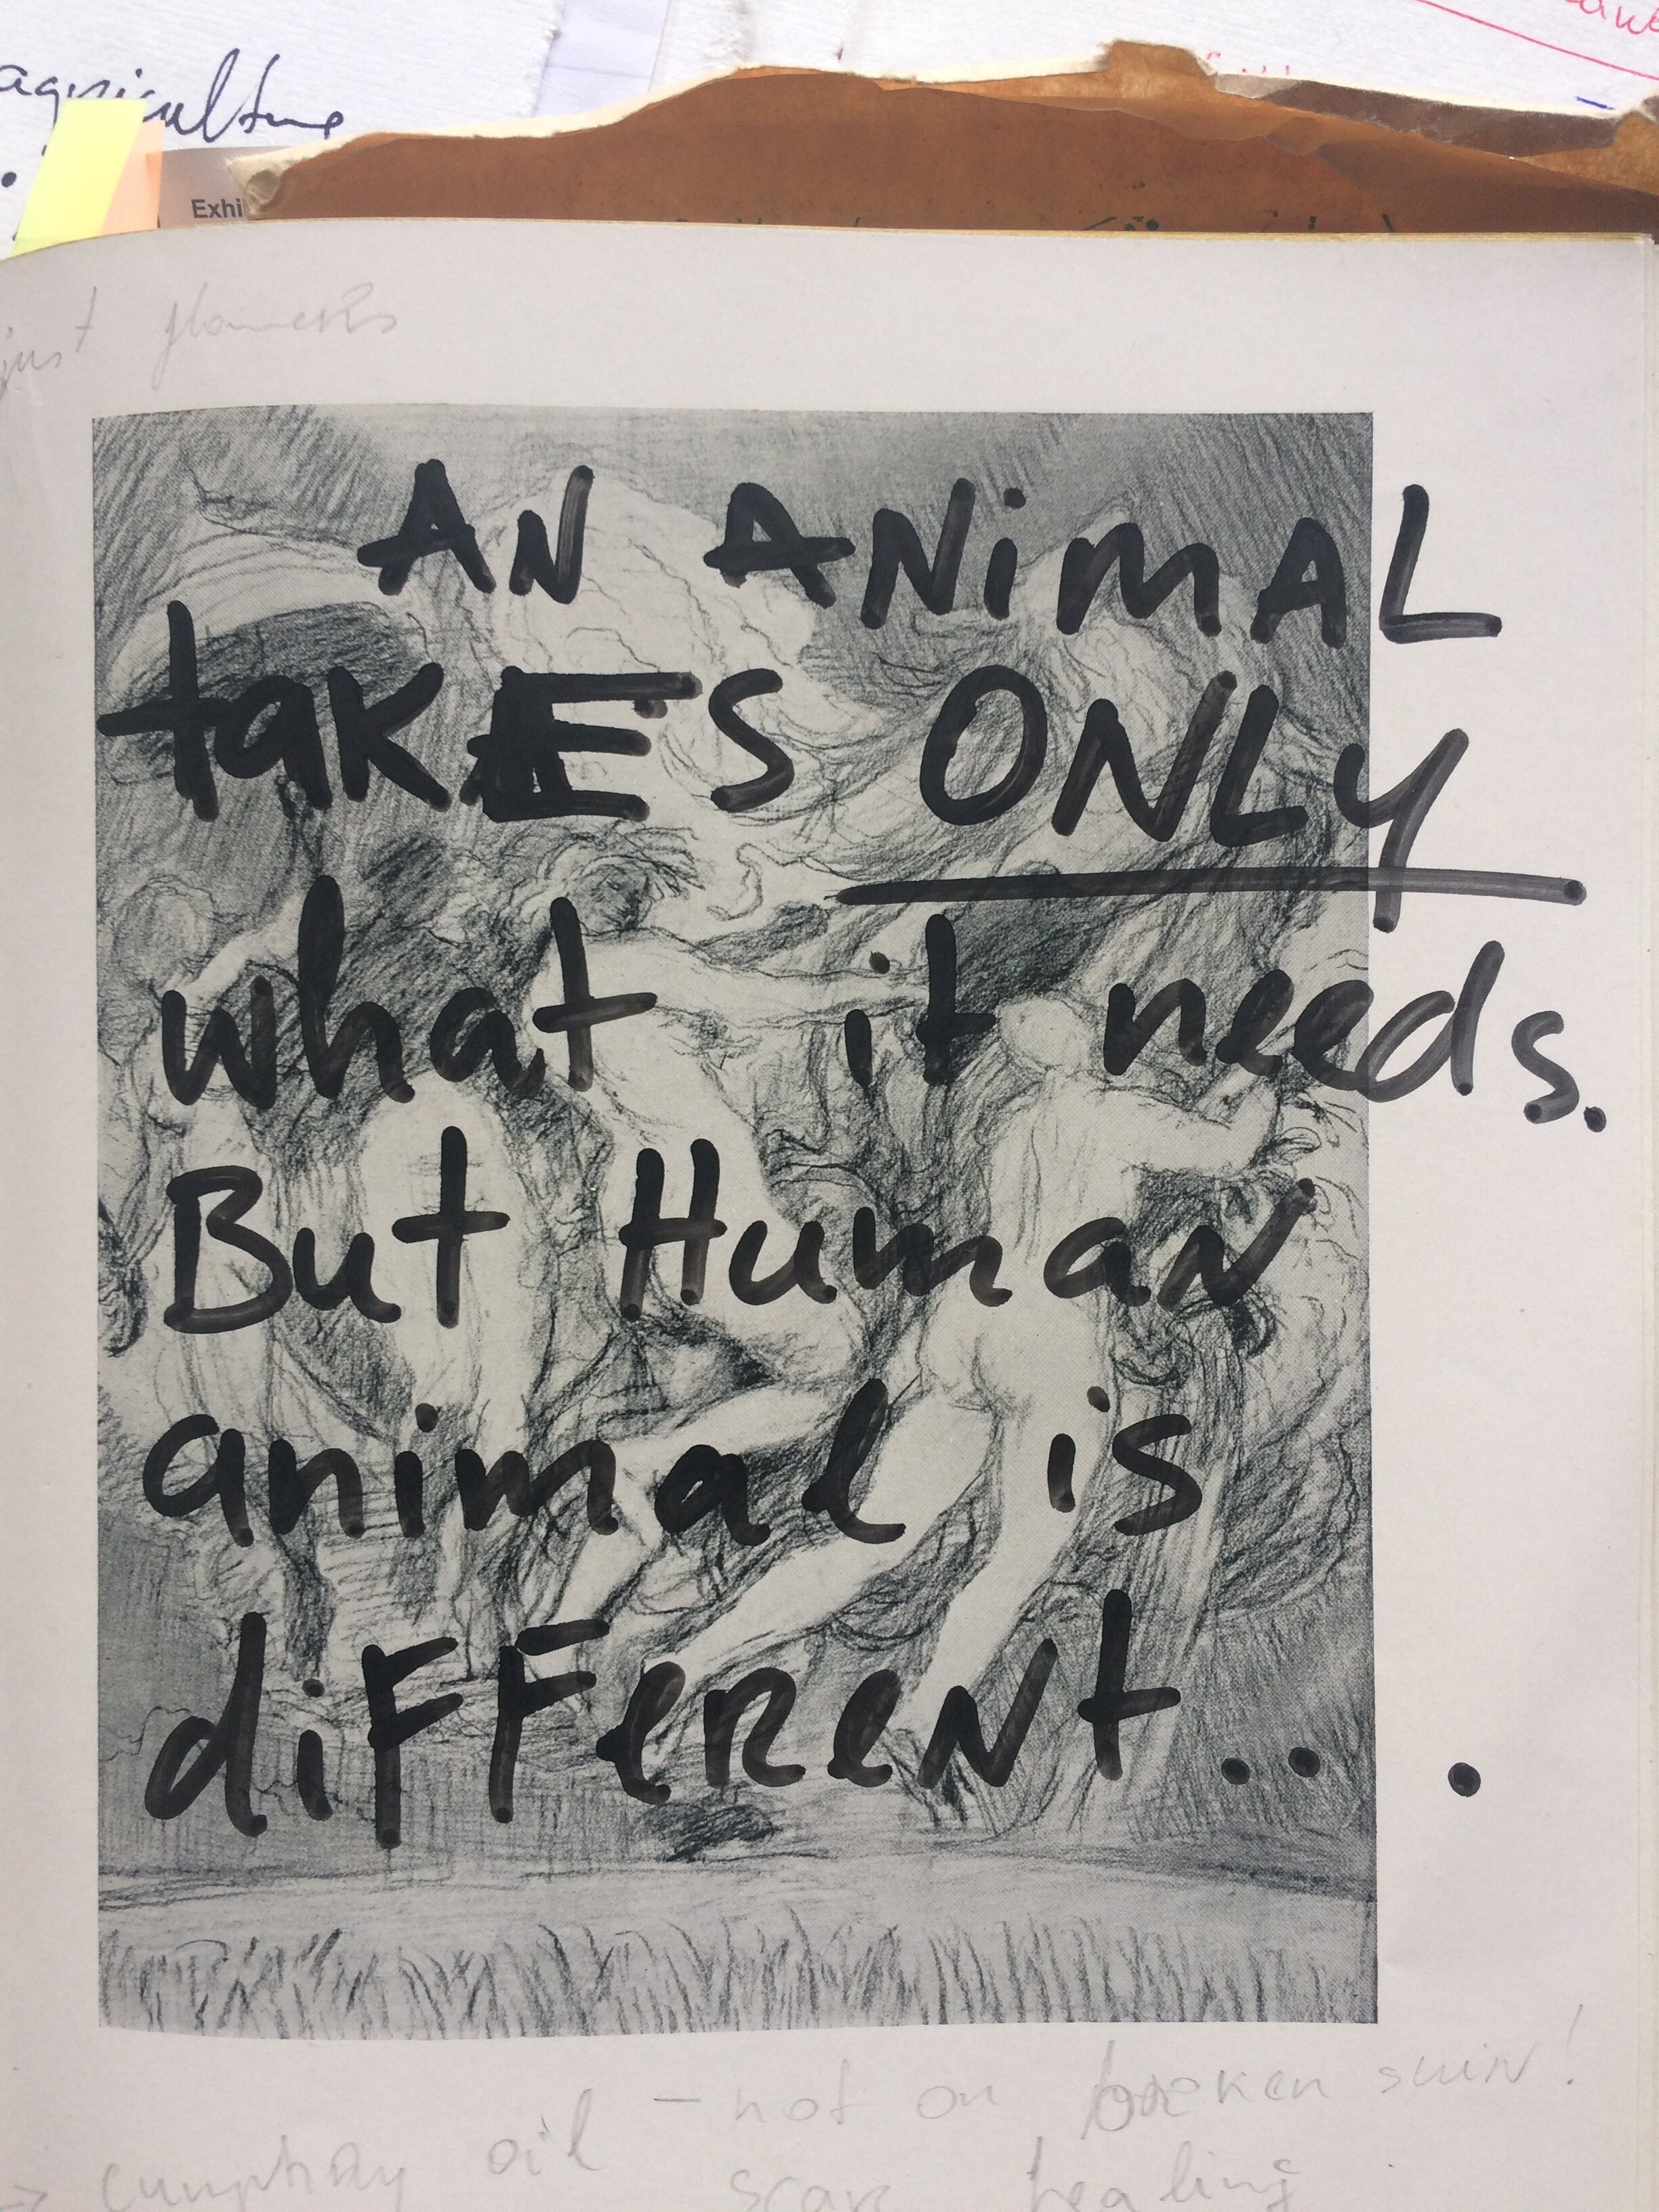 agriculture
Exhi
just flowers
AN ANiMAL
takES ONLy
what it needs.
But Human
animal is
diFFeReNt...
— not on broken skin!
→ cumphrey oil scar healing